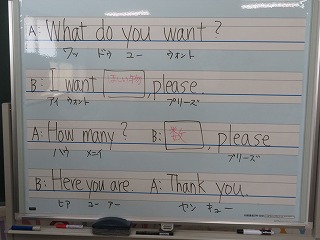 A: What do you want?
ワッ ドゥ ユー ウォント
B: I want [ほしい物], please.
アイ ウォント プリーズ
A: How many? B: [数], please
ハウ メニイ プリーズ
B: Here you are. A: Thank you.
ヒア ユー アー サン キュー